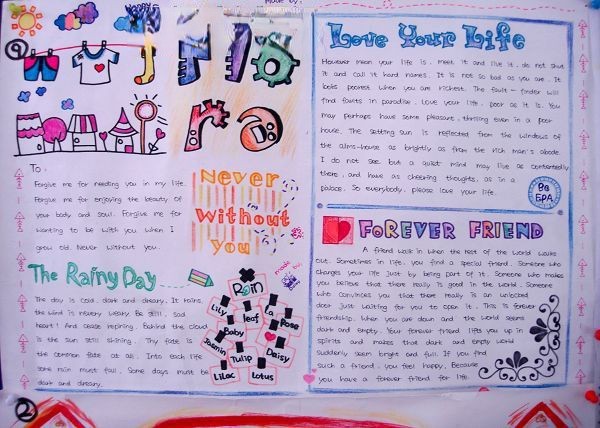 made by:
HAPPY
1
Flo
ra
To:
Forgive me for needing you in my life.
Forgive me for enjoying the beauty of
your body and soul. Forgive me for
wanting to be with you when I
grow old. Never without you.
Never
Without
you
The Rainy Day
The day is cold, dark and dreary. It rains,
the wind is never weary. Be still, sad
heart! And cease repining. Behind the cloud
is the sun still shining. Thy fate is
the common fate of all. Into each life
some rain must fall. Some days must be
dark and dreary.
made by
Rain
Lily
leaf
La
Rose
Baby
Jasmin
Tulip
Daisy
Lilac
Lotus
Love Your Life
However mean your life is, meet it and live it, do not shut
it and call it hard names. It is not so bad as you are. It
looks poorest when you are richest. The fault-finder will
find faults in paradise. Love your life, poor as it is. You
may perhaps have some pleasant, thrilling even in a poor
house. The setting sun is reflected from the windows of
the alms-house as brightly as from the rich man's abode.
I do not see but a quiet mind may live as contentedly
there, and have as cheering thoughts, as in a
palace. So everybody, please love your life.
FOREVER FRIEND
A friend walk in when the rest of the world walks
out. Sometimes in life, you find a special friend. Someone who
changes your life just by being part of it. Someone who makes
you believe that there really is good in the world. Someone
who convinces you that there really is an unlocked
door just waiting for you to open it. This is forever
friendship. When you are down and the world seems
dark and empty. Your forever friend lifts you up in
spirits and makes that dark and empty world
suddenly seem bright and full. If you find
such a friend, you feel happy. Because
you have a forever friend for life.
2